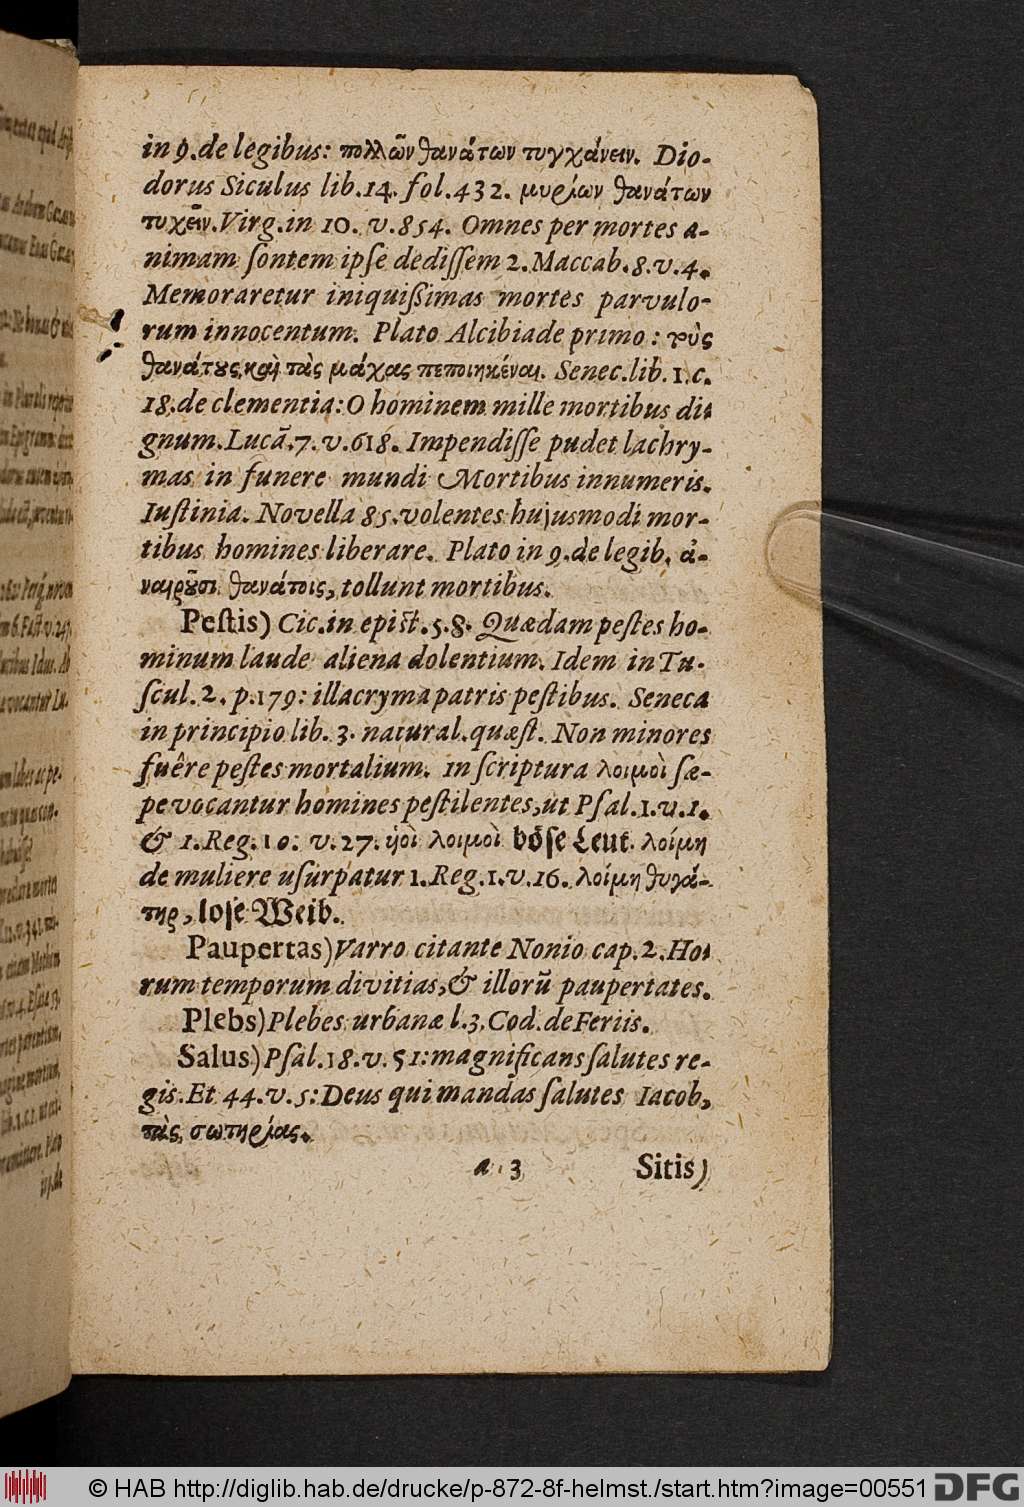 in 9. de legibus: πολλῶν θανάτων τυγχάνειν. Dio-
dorus Siculus lib. 14. fol. 432. μυρίων θανάτων
τυχεῖν. Virg. in 10. v. 854. Omnes per mortes a-
nimam ſontem ipſe dediſſem 2. Maccab. 8. v. 4.
Memoraretur iniquißimas mortes parvulo-
rum innocentum. Plato Alcibiade primo: τοὺς
θανάτους, καὶ τὰς μάχας πεποιηκέναι. Senec. lib. 1. c.
18. de clementia: O hominem mille mortibus di-
gnum. Lucã. 7. v. 618. Impendiſſe pudet lachry-
mas in funere mundi Mortibus innumeris.
Iuſtinia. Novella 85. volentes hujusmodi mor-
tibus homines liberare. Plato in 9. de legib. ἀ-
ναιροῦσι θανάτοις, tollunt mortibus.
Peſtis) Cic. in epiſt. 5. 8. Quædam peſtes ho-
minum laude aliena dolentium. Idem in Tu-
ſcul. 2. p. 179: illacryma patris peſtibus. Seneca
in principio lib. 3. natural. quæſt. Non minores
fuêre peſtes mortalium. In ſcriptura λοιμοὶ ſæ-
pe vocantur homines peſtilentes, ut Pſal. 1. v. 1.
& 1. Reg. 10. v. 27. ὑοὶ λοιμοὶ böſe Leut. λοίμη
de muliere uſurpatur 1. Reg. 1. v. 16. λοίμη θυγά-
τηρ, loſe Weib.
Paupertas) Varro citante Nonio cap. 2. Ho-
rum temporum divitias, & illorũ paupertates.
Plebs) Plebes urbanæ l. 3. Cod. de Feriis.
Salus) Pſal. 18. v. 51: magnificans ſalutes re-
gis. Et 44. v. 5: Deus qui mandas ſalutes Iacob,
τὰς σωτηρίας.
a 3 Sitis)
© HAB http://diglib.hab.de/drucke/p-872-8f-helmst./start.htm?image=00551
DFG